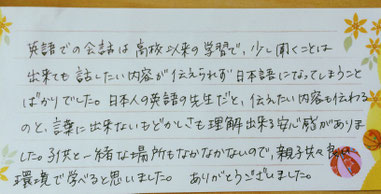 英語での会話は高校以来の学習で、少し聞くことは
出来ても話したい内容が伝えられず日本語になってしまうこと
ばかりでした。日本人の英語の先生だと、伝えたい内容も伝わる
のと、言葉に出来ないもどかしさも理解出来る安心感がありま
した。子供と一緒な場所もなかなかないので、親子共々
環境で学べると思いました。 ありがとうございました。